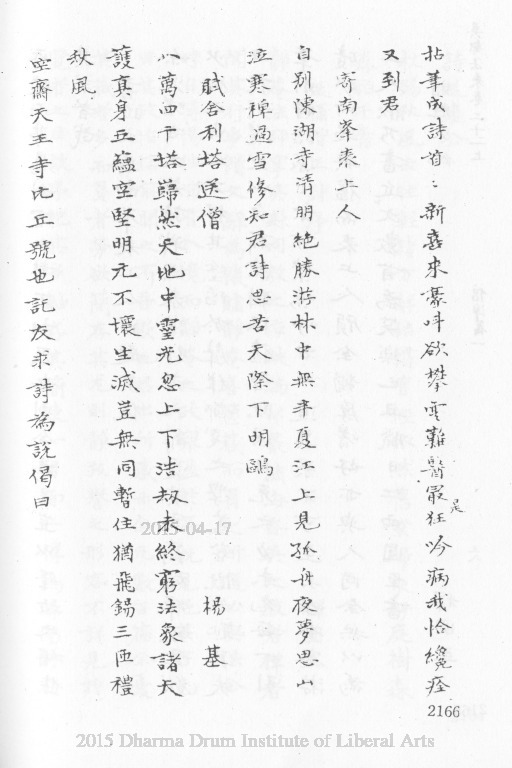 拈筆成詩首新喜來豪呌欲攀雲難醫最狂吟病我恰纔痊
是
又到君
寄南峯表上人
自别陳湖寺清朋絶勝游林中無半夏江上見孤舟夜夢思山
泣寒裨過雪修知君詩思苦天際下明鷗
賦舍利塔送僧 楊基
八萬四千塔巋然天地中靈光忽上下浩刼未終窮法象諸天
護真身五蘊空堅明元不壞生滅豈無同暫住猶飛錫三匝禮
秋風
空齋天王寺比丘號也託友求詩為説偈曰
2166
2015-04-17
2015 Dharma Drum Institute of Liberal Arts